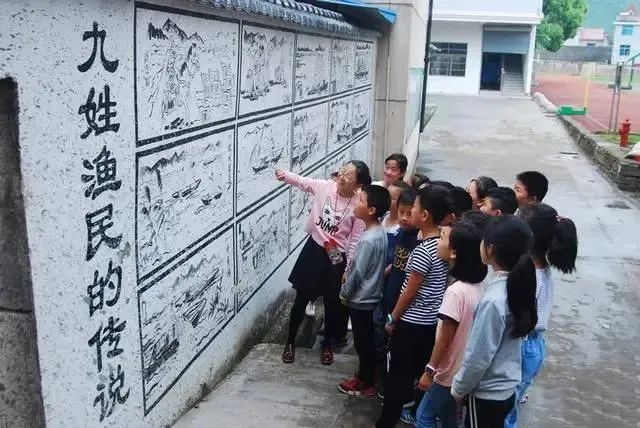 九姓渔民的传说
JUMP